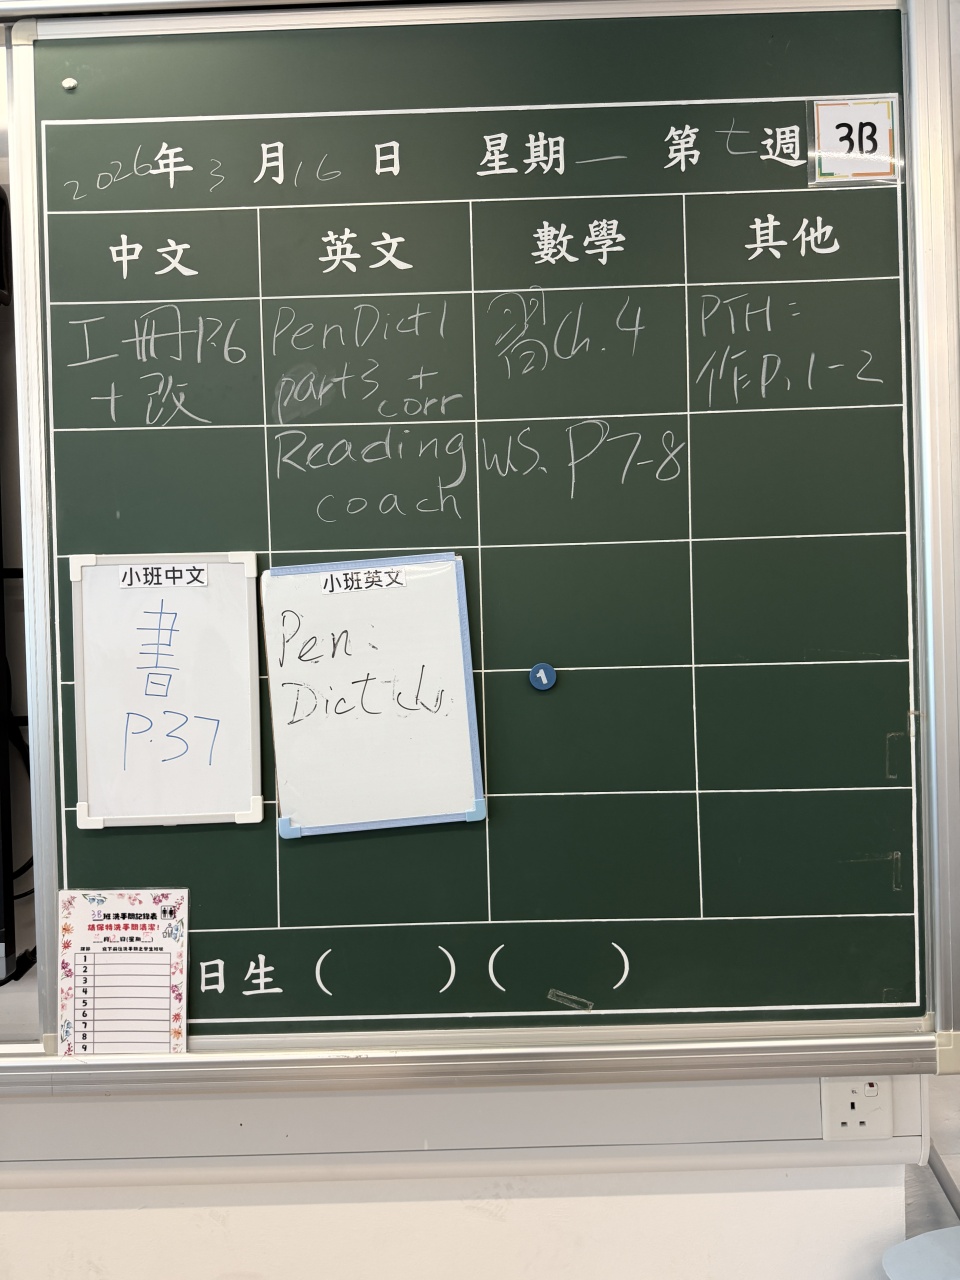 2026年3月16日 星期一 第七週 3B
中文 英文 數學 其他
工冊P.6
+改
Pen Dict 1
part 3 +
corr
習Ch.4
PTH:
作P.1-2
Reading
coach
W.S. P7-8
小班中文
書
P.37
小班英文
Pen:
Dict
1
3B班洗手間記錄表
請保持洗手間清潔!
1
2
3
4
5
6
7
8
9
日生 ( ) ( )